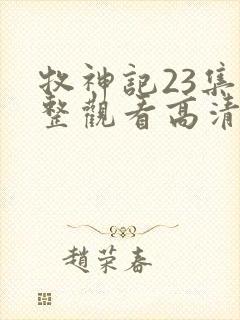 牧神記23集
整觀看高清
趙荣春